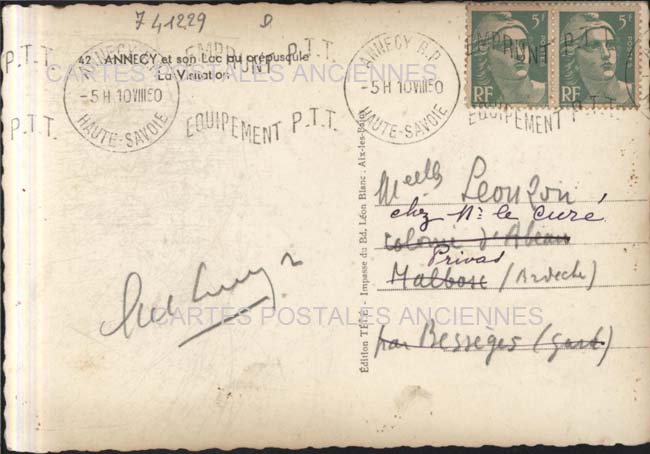 741229 D
42 ANNECY et son Lac au crépuscule
La Visitation
ANNECY R.P.
-5H 10 VIII 50
HAUTE-SAVOIE
EMPRUNT P.T.T.
EQUIPEMENT P.T.T.
ANNECY R.P.
-5H 10 VIII 50
HAUTE-SAVOIE
EMPRUNT P.T.T.
EQUIPEMENT P.T.T.
5F RF
5F RF
POSTES
CARTES POSTALES ANCIENNES
Édition - Impasse du Bd. Léon Blanc, Aix-les-Bains
Meelles Leonzon
chez Mr le Curé
colonie d'Abeau
Privas
Malbosc (Ardèche)
par Bessèges (Gard)
CARTES POSTALES ANCIENNES